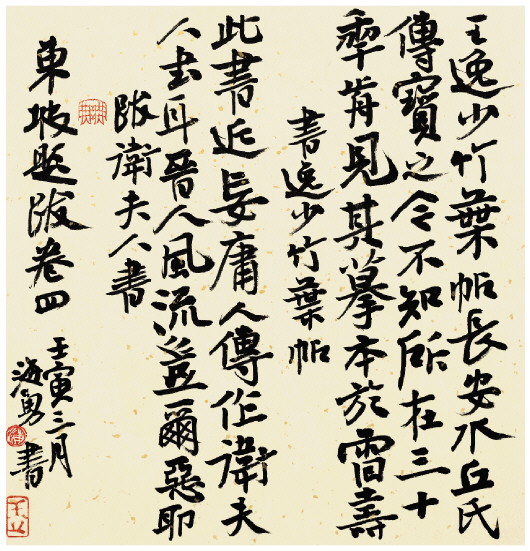 王逸少竹葉帖長安水丘氏
傳寶之今不知所在三十
秊歬見其摹本於雷壽
書逸少竹葉帖
此書近妄庸人傳作衛夫
人書耳晉人風流豈爾惡耶
跋衛夫人書
東坡題跋卷四
壬寅三月
海勇書